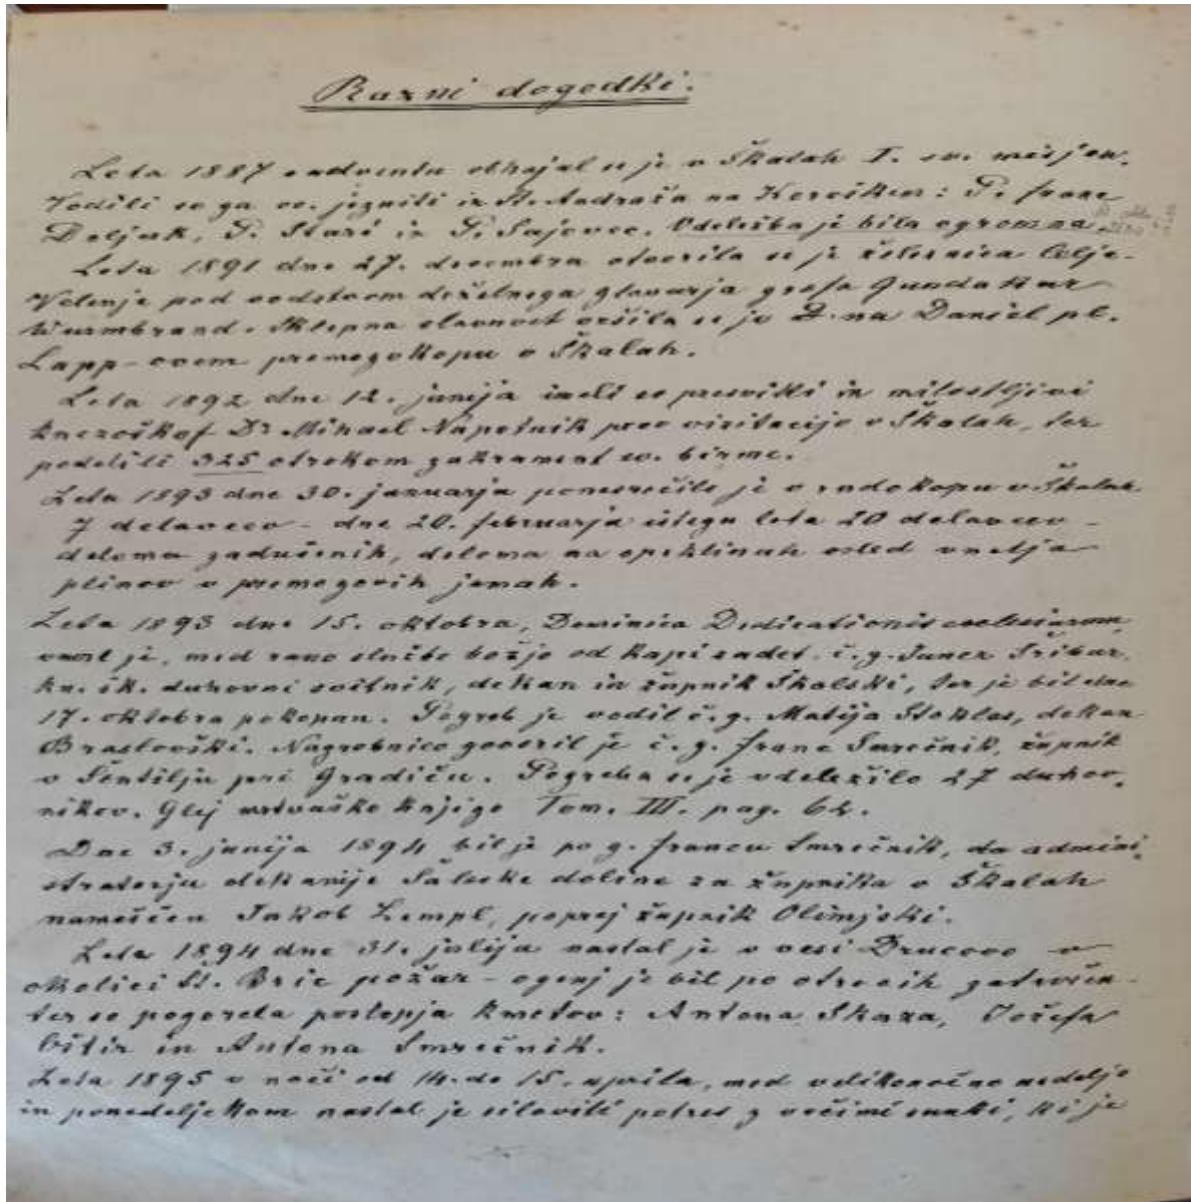 Razni dogodki.
Leta 1887 v adventu obhajal se je v Škalah I. sv. misijon.
Vodili so ga oo. jezuiti iz St. Andraža na Koroškem: P. Franc
Doljak, P. Stare in P. Sajovec. Vdeležba je bila ogromna.
Leta 1891 dne 27. decembra otvorila se je železnica Celje-
Velenje pod vodstvom deželnega glavarja grofa Gundakar
Wurmbrand. Sklepna slavnost vršila se je na Daniel pl.
Lapp-ovem premogokopu v Škalah.
Leta 1892 dne 12. junija imeli so presvitli in milostljivi
knezoškof Dr Mihael Napotnik prvo visitacijo v Škalah, ter
podelili 325 otrokom zakrament sv. birme.
Leta 1893 dne 30. januarja ponesrečilo je v rudokopu v Škalah
7 delavcev - dne 20. februarja istega leta 20 delavcev -
deloma zadušenih, deloma na opeklinah vsled vnetja
plinov v premogovih jamah.
Leta 1893 dne 15. oktobra, Dominica Dedicationis ecclesiarum,
umrl je, med rano službo božjo od kapi zadet, č. g. Janez
kn. šk. duhovni svétnik, dekan in župnik Škalski, ter je bil dne
17. oktobra pokopan. Pogreb je vodil č. g. Matija Stoklas, dekan
Braslovški. Nagrobnico govoril je č. g. Franc Smrečnik, župnik
v Šentilju pri Gradiču. Pogreba se je vdeležilo 27 duhov-
nikov. Glej mrtvaško knjigo Tom. III. pag. 62.
Dne 3. junija 1894 bil je po g. Francu Smrečnik, do admini-
stratorju dekanije Šaleške doline za župnika v Škalah
nameščen Jakob Lempl, poprej župnik Olimjski.
Leta 1894 dne 31. julija nastal je v vesi Drucovo v
okolici St. Bric požar - ogenj je bil po otrocih zatrošen -
ter so pogorela poslopja kmetov: Antona Skaza, Jožefa
in Antona Smrečnik.
Leta 1895 v noči od 14. do 15. aprila, med velikonočno nedeljo
in ponedeljkom nastal je siloviti potres z večimi sunki, ki je